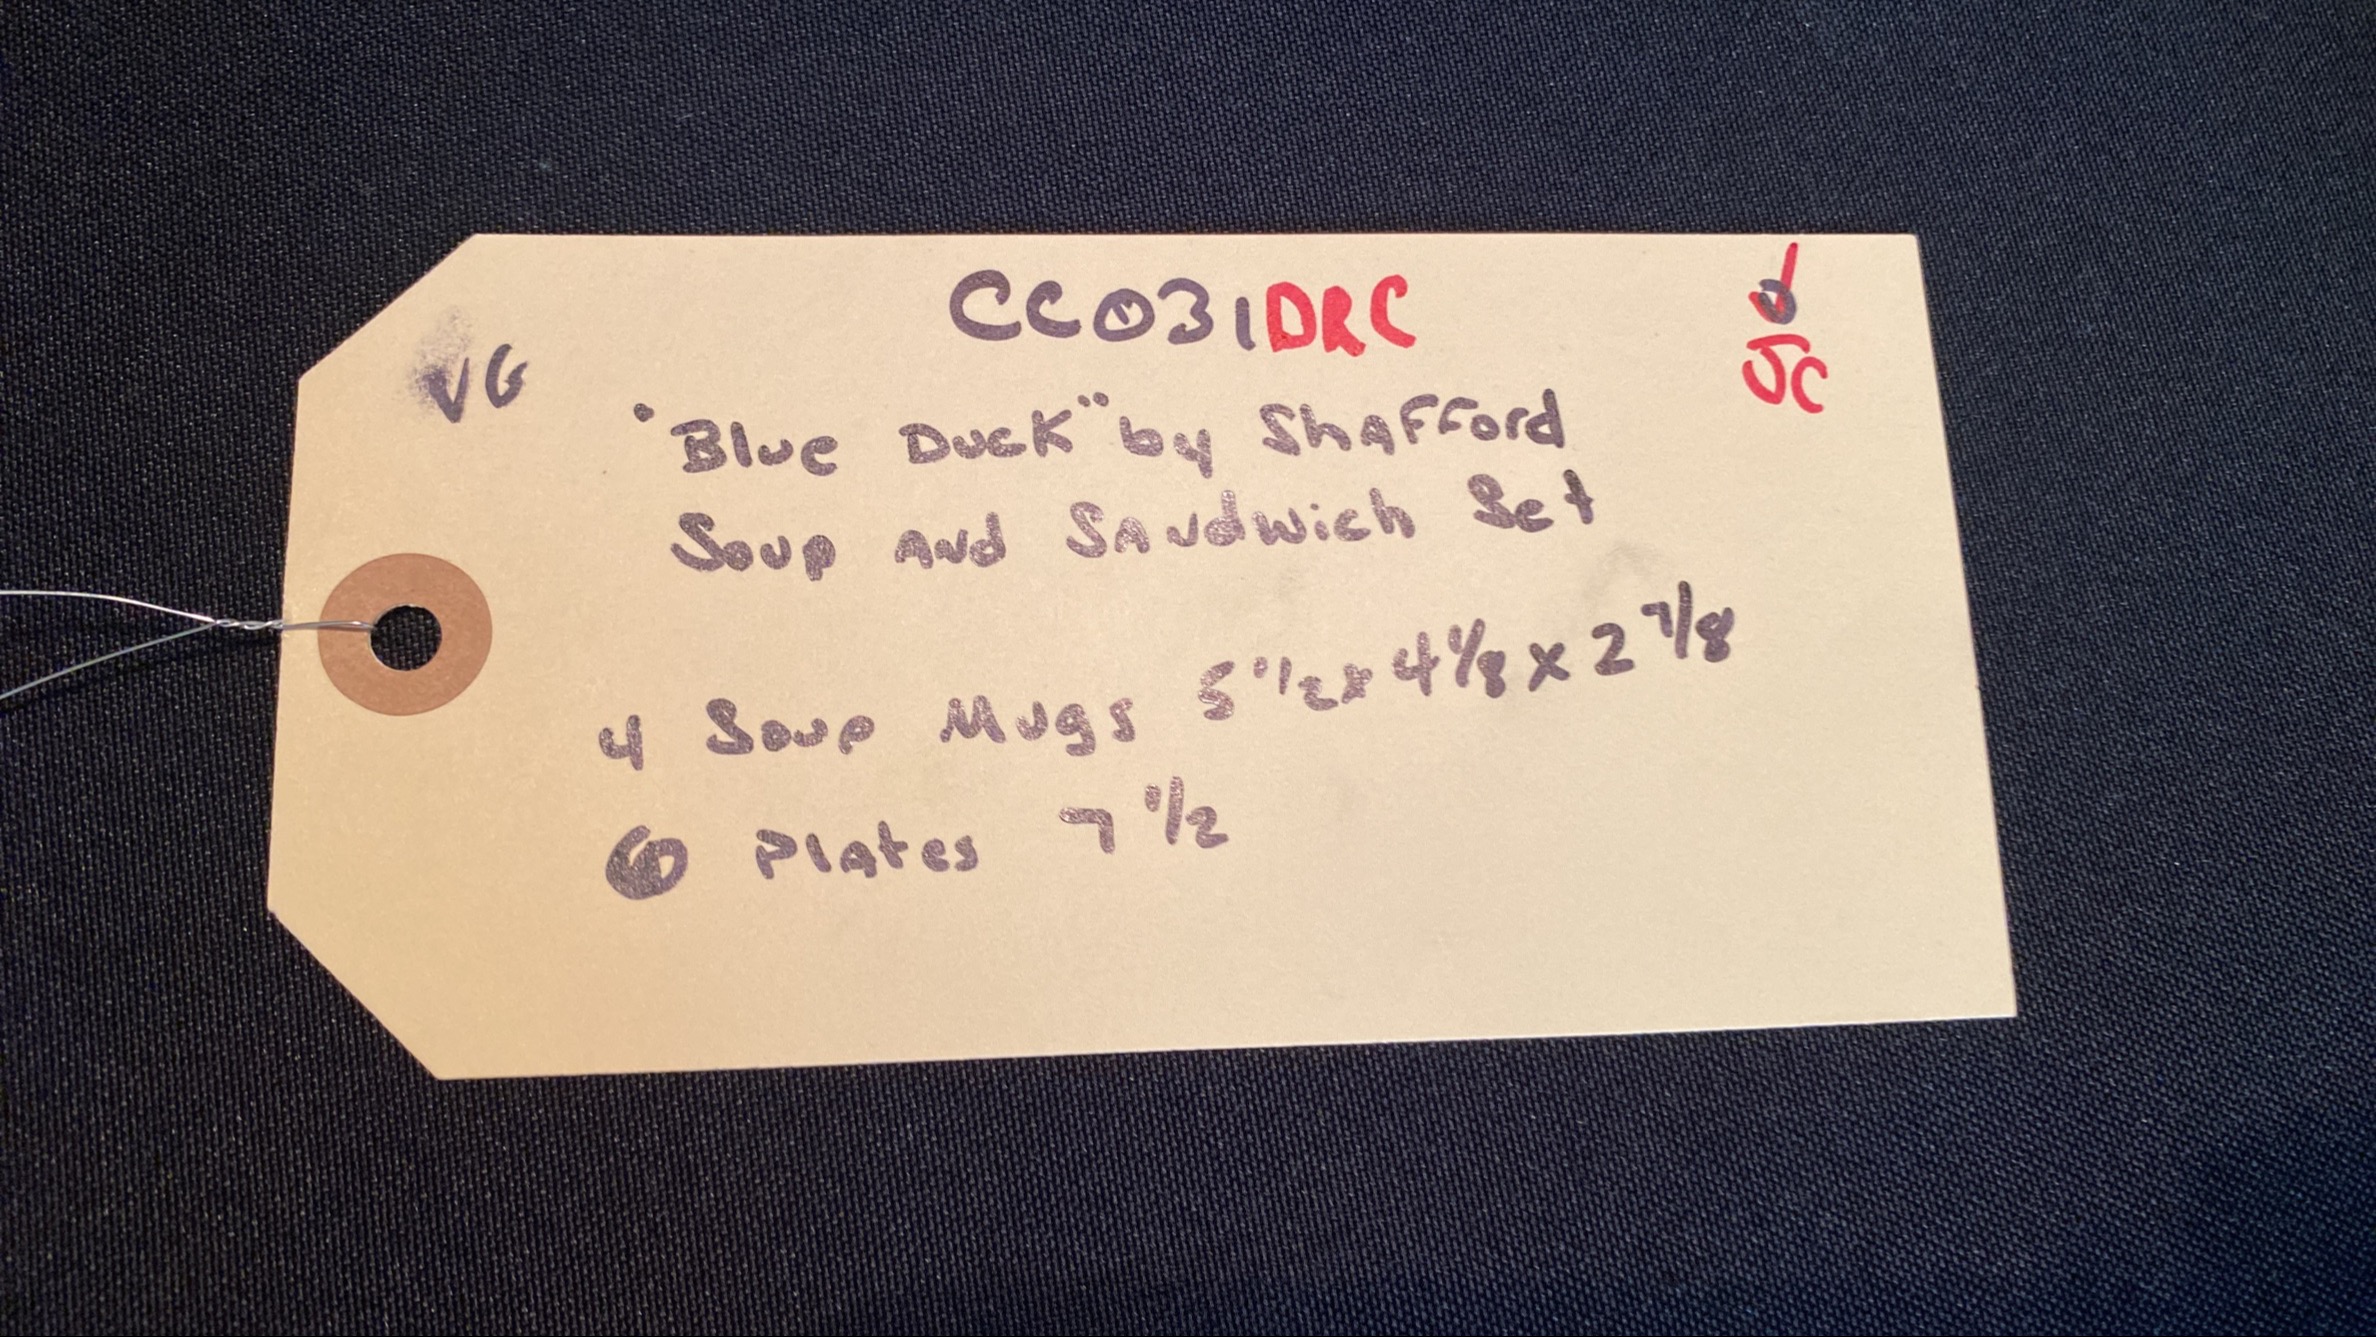 CC031DRC
JC
VG
"Blue Duck" by Shafford
Soup and Sandwich Set
4 Soup Mugs 5 1/2 x 4 1/8 x 2 7/8
Plates 7 1/2